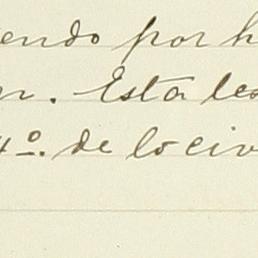 endo por h
n. Esta les
4º. de lo civ